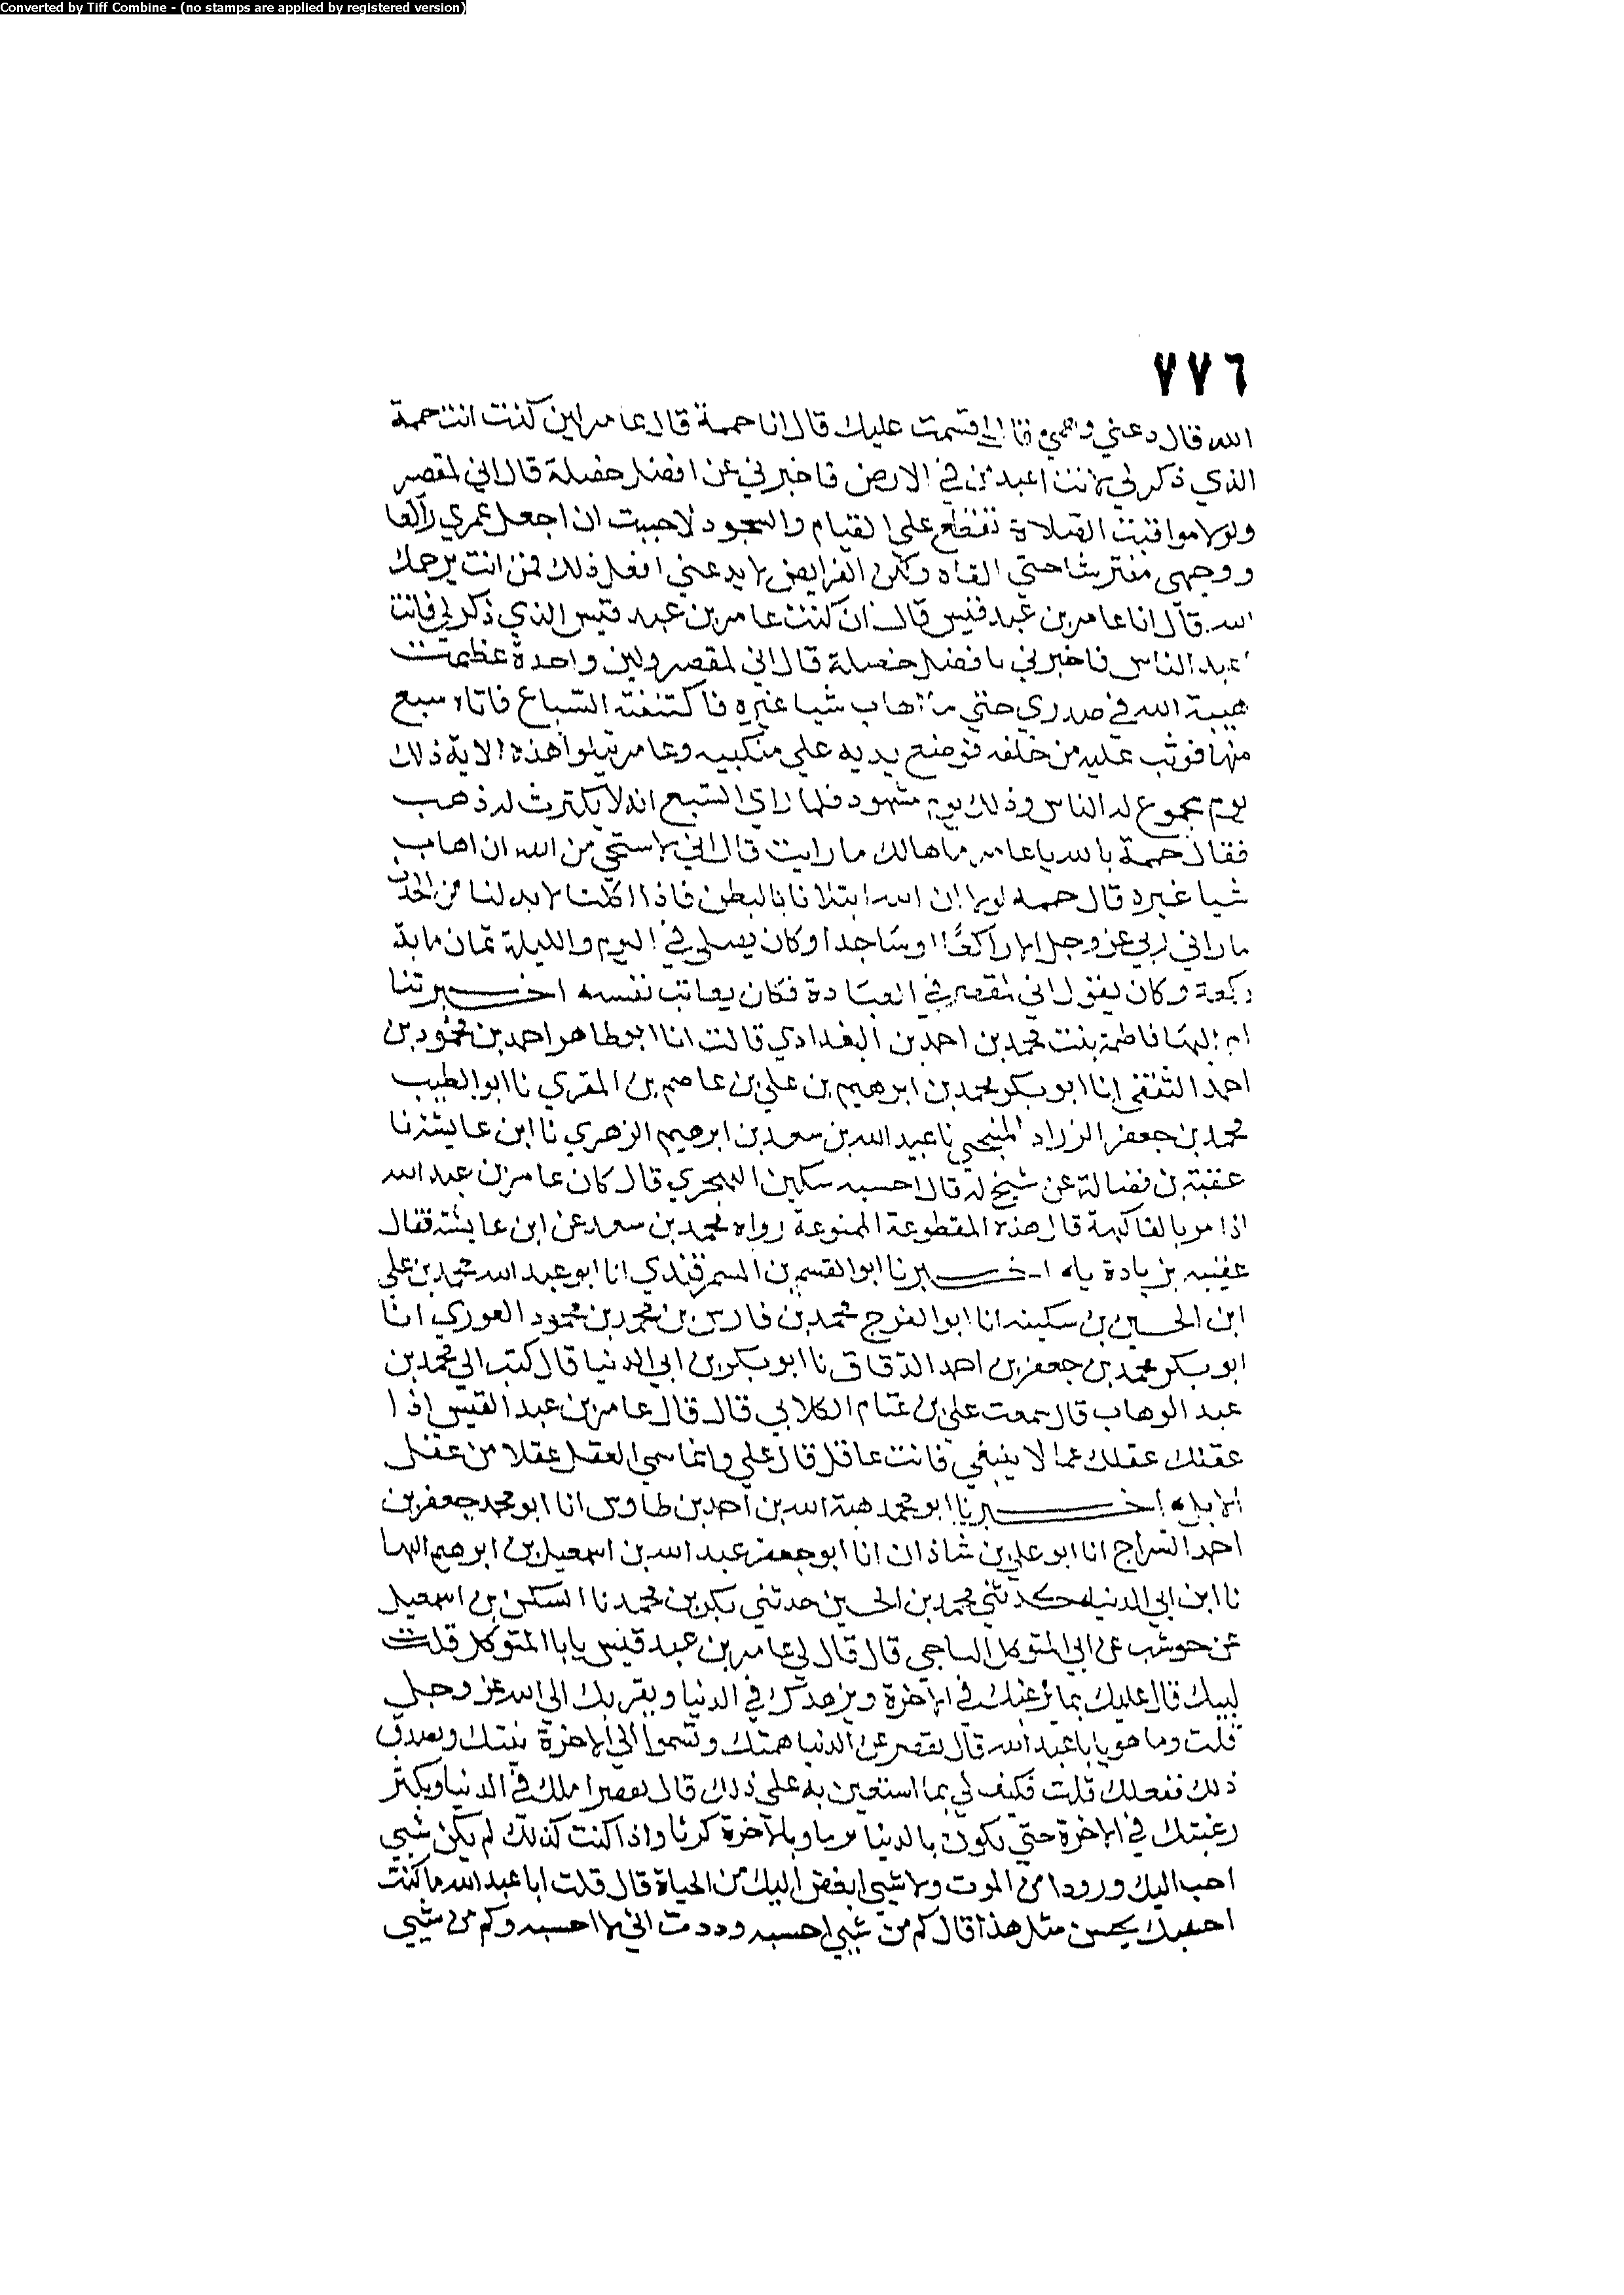 Converted by Tiff Combine - (no stamps are applied by registered version)
٧٧٦
الله قال دعني وهمي قال اقسمت عليك قال انا حممة قال عامر لين كنت انت حممة
الذي ذكر لي لانت اعبد من في الارض فاخبرني عن افضل خصلة قال اني لمقصر
ولولا مواقيت الصلاة تقطع علي القيام والسجود لاحببت ان اجعل عمري راكعا
ووجهي مفترشا حتي القاه ولكن الفرايض لا يدعني افعل ذلك فمن انت يرحمك
الله قال انا عامر بن عبد قيس قال ان كنت عامر بن عبد قيس الذي ذكر لي فانت
اعبد الناس فاخبرني بافضل خصلة قال اني لمقصر ولين واحدة عظمت
هيبة الله في صدري حتي ما اهاب شيا غيره فاكتنفته السباع فاتاه سبع
منها فوثب عليه من خلفه فوضع يديه علي منكبيه وعامر يتلوا هذه الاية ذلك
يوم مجموع له الناس وذلك يوم مشهود فلما راي السبع انه لا يكترث له ذهب
فقال حممة بالله يا عامر ما هالك ما رايت قال اني لاستحي من الله ان اهاب
شيا غيره قال حممه لولا ان الله ابتلانا بالبطن فاذا اكلنا لا بد لنا من الحدث
ما راني ربي عز وجل الا راكعا وساجدا وكان يصلي في اليوم والليلة ثمان ماية
ركعة وكان يقول اني لمقصر في العبادة فكان يعاتب نفسه اخبرتنا
ام البها فاطمة بنت محمد بن احمد بن البغدادي قالت انا ابو طاهر احمد بن محمود بن
احمد الثقفي انا ابو بكر محمد بن ابرهيم بن علي بن عاصم بن المقري نا ابو الطيب
محمد بن جعفر الزراد المنبجي نا عبيد الله بن سعد بن ابرهيم الزهري نا ابن عايشة نا
عقبة بن فضالة عن شيخ له قال احسبه سكين الهجري قال كان عامر بن عبد الله
اذا مر بالفاكهة قال هذه المقطوعة الممنوعة رواه محمد بن سعد عن ابن عايشة فقال
عقيبه زيادة ياه اخبرنا ابو القسم بن السمرقندي انا ابو عبد الله محمد بن علي
ابن الحسين بن سكينه انا ابو الفرج محمد بن فارس بن محمد بن محمود الغوري انا
ابو بكر محمد بن جعفر بن احمد الدقاق نا ابو بكر بن ابي الدنيا قال كتب الي محمد بن
عبد الوهاب قال سمعت علي بن عثام الكلابي قال قال عامر بن عبد القيس اذا
عقلك عقلك عما لا ينبغي فانت عاقل قال علي وانما سمي العقل عقلا من عقل
الابل اخبرنا ابو محمد هبة الله بن احمد بن طاوس انا ابو محمد جعفر بن
احمد السراج انا ابو علي بن شاذان انا ابو جعفر عبد الله بن اسمعيل بن ابرهيم الها
نا ابن ابي الدنيا حدثني محمد بن الحسين حدثني بكر بن محمد نا السكن بن اسمعيل
عن حوشب عن ابي المتوكل الناجي قال قال لي عامر بن عبد قيس يابا المتوكل قلت
لبيك قال عليك بما يرغبك في الاخرة ويزهدك في الدنيا ويقربك الي الله عز وجل
قلت وما هو يابا عبد الله قال تقصر عن الدنيا همتك وتسموا الي الاخرة نيتك وتصدق
ذلك بفعلك قلت فكيف لي بما استعين به علي ذلك قال تقصر املك في الدنيا وتكثر
رغبتك في الاخرة حتي تكون بالدنيا برما وبالاخرة كربا واذا كنت كذلك لم يكن شيي
احب اليك ورودا من الموت ولا شيي ابغض اليك من الحياة قال قلت ابا عبد الله ما كنت
احسبك تحسن مثل هذا قال كم من شيي احسنه ووددت اني لا احسنه وكم من شيي